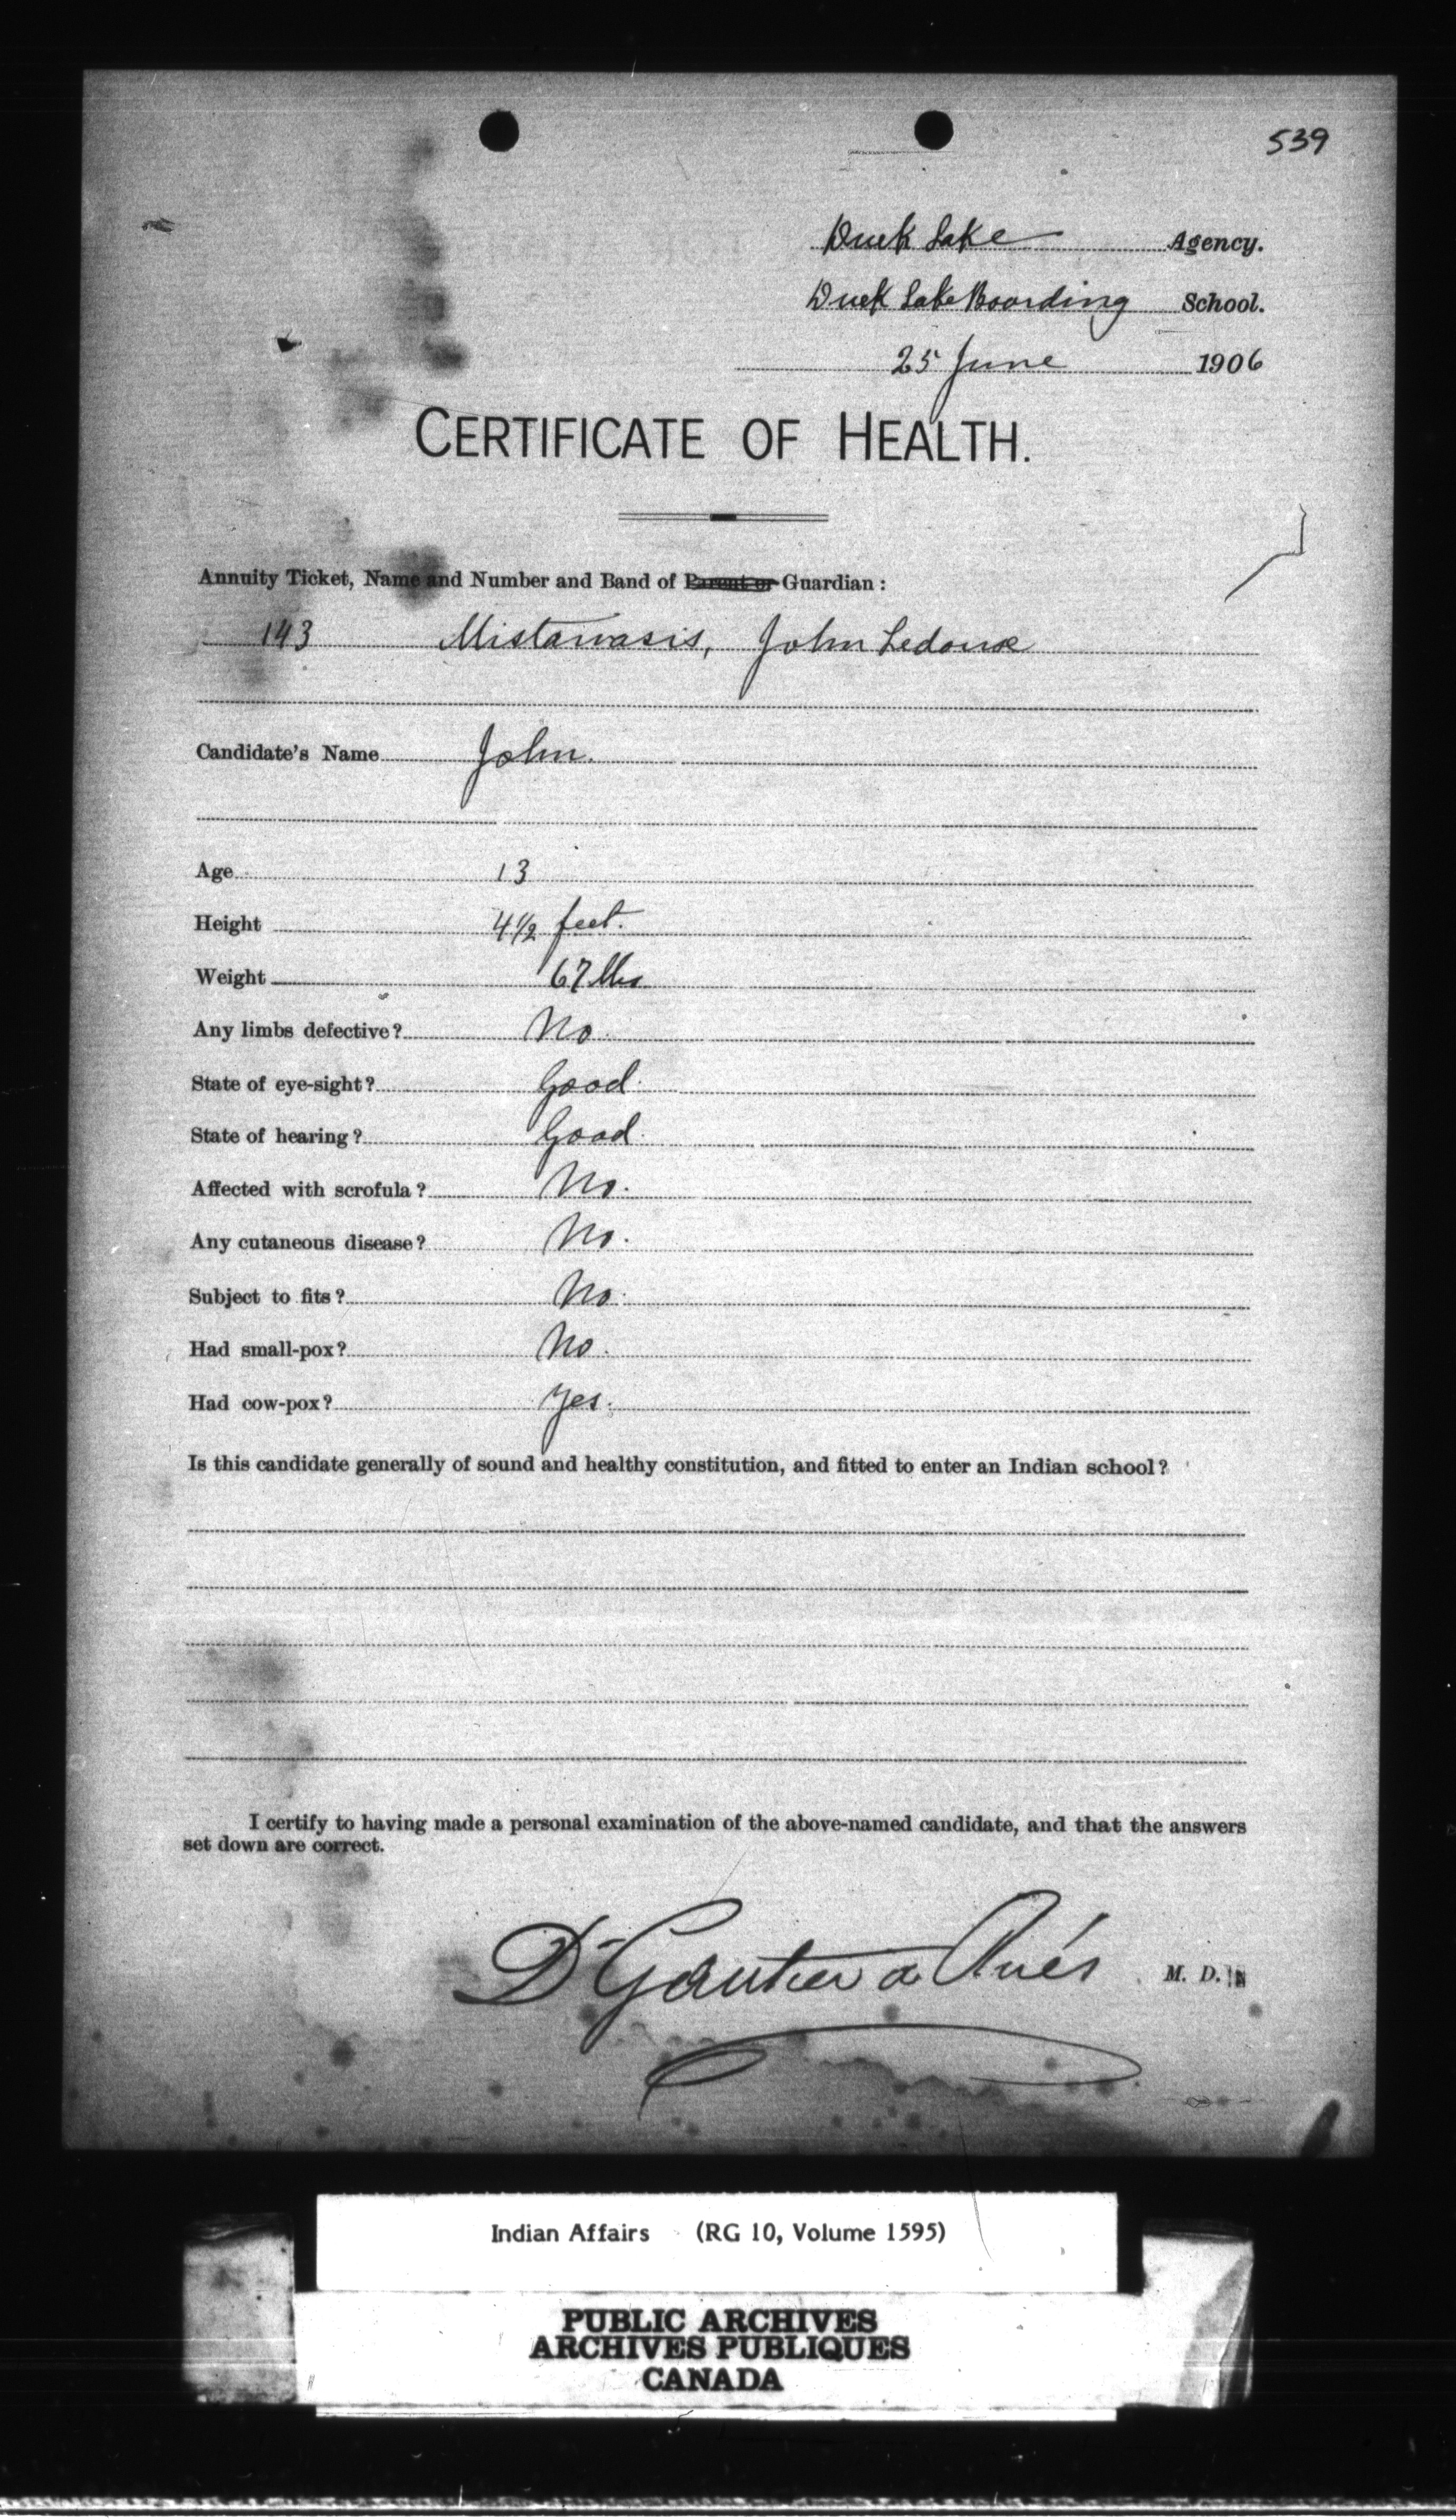 539
Duck Lake Agency.
Duck Lake Boarding School.
25 June 1906
CERTIFICATE OF HEALTH.
Annuity Ticket, Name and Number and Band of Parent or Guardian :
143 Mistawasis, John Ledoux
Candidate's Name John.
Age 13
Height 4½ feet.
Weight 67 lbs
Any limbs defective? No.
State of eye-sight? Good.
State of hearing? Good.
Affected with scrofula? No.
Any cutaneous disease? No.
Subject to fits? No.
Had small-pox? No.
Had cow-pox? Yes.
Is this candidate generally of sound and healthy constitution, and fitted to enter an Indian school?
I certify to having made a personal examination of the above-named candidate, and that the answers
set down are correct.
Dr M. D.
Indian Affairs (RG 10, Volume 1595)
PUBLIC ARCHIVES
ARCHIVES PUBLIQUES
CANADA